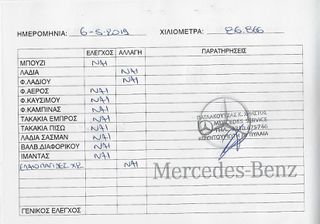 ΗΜΕΡΟΜΗΝΙΑ: 6-5-2019 ΧΙΛΙΟΜΕΤΡΑ: 86.866
ΕΛΕΓΧΟΣ ΑΛΛΑΓΗ ΠΑΡΑΤΗΡΗΣΕΙΣ
ΜΠΟΥΖΙ ΝΑΙ
ΛΑΔΙΑ ΝΑΙ
Φ.ΛΑΔΙΟΥ ΝΑΙ
Φ.ΑΕΡΟΣ ΝΑΙ
Φ.ΚΑΥΣΙΜΟΥ ΝΑΙ
Φ.ΚΑΜΠΙΝΑΣ ΝΑΙ
ΤΑΚΑΚΙΑ ΕΜΠΡΟΣ ΝΑΙ
ΤΑΚΑΚΙΑ ΠΙΣΩ ΝΑΙ
ΛΑΔΙΑ ΣΑΣΜΑΝ ΝΑΙ
ΒΑΛΒ.ΔΙΑΦΟΡΙΚΟΥ ΝΑΙ
ΙΜΑΝΤΑΣ ΝΑΙ
ΝΑΙ
MERCEDES SERVICE
Mercedes-Benz
ΓΕΝΙΚΟΣ ΕΛΕΓΧΟΣ